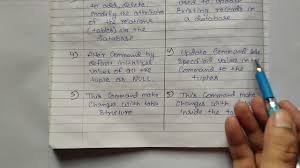 to add, delete
modify the attributes
of the relations
(tables) in the
database
used to update
Existing records in
a database
4) Alter Command by
default initializes
values of all the
tuple as NULL.
4) Update Command
Specified values in
Command to the
tuples
5) This Command make
Changes with table
Structure
5) This Command makes
Changes with
inside the